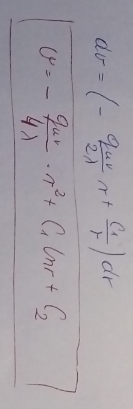 dv = (- quv/2λ r + C1/r) dr
v = - quv/4λ · r² + C1 ln r + C2